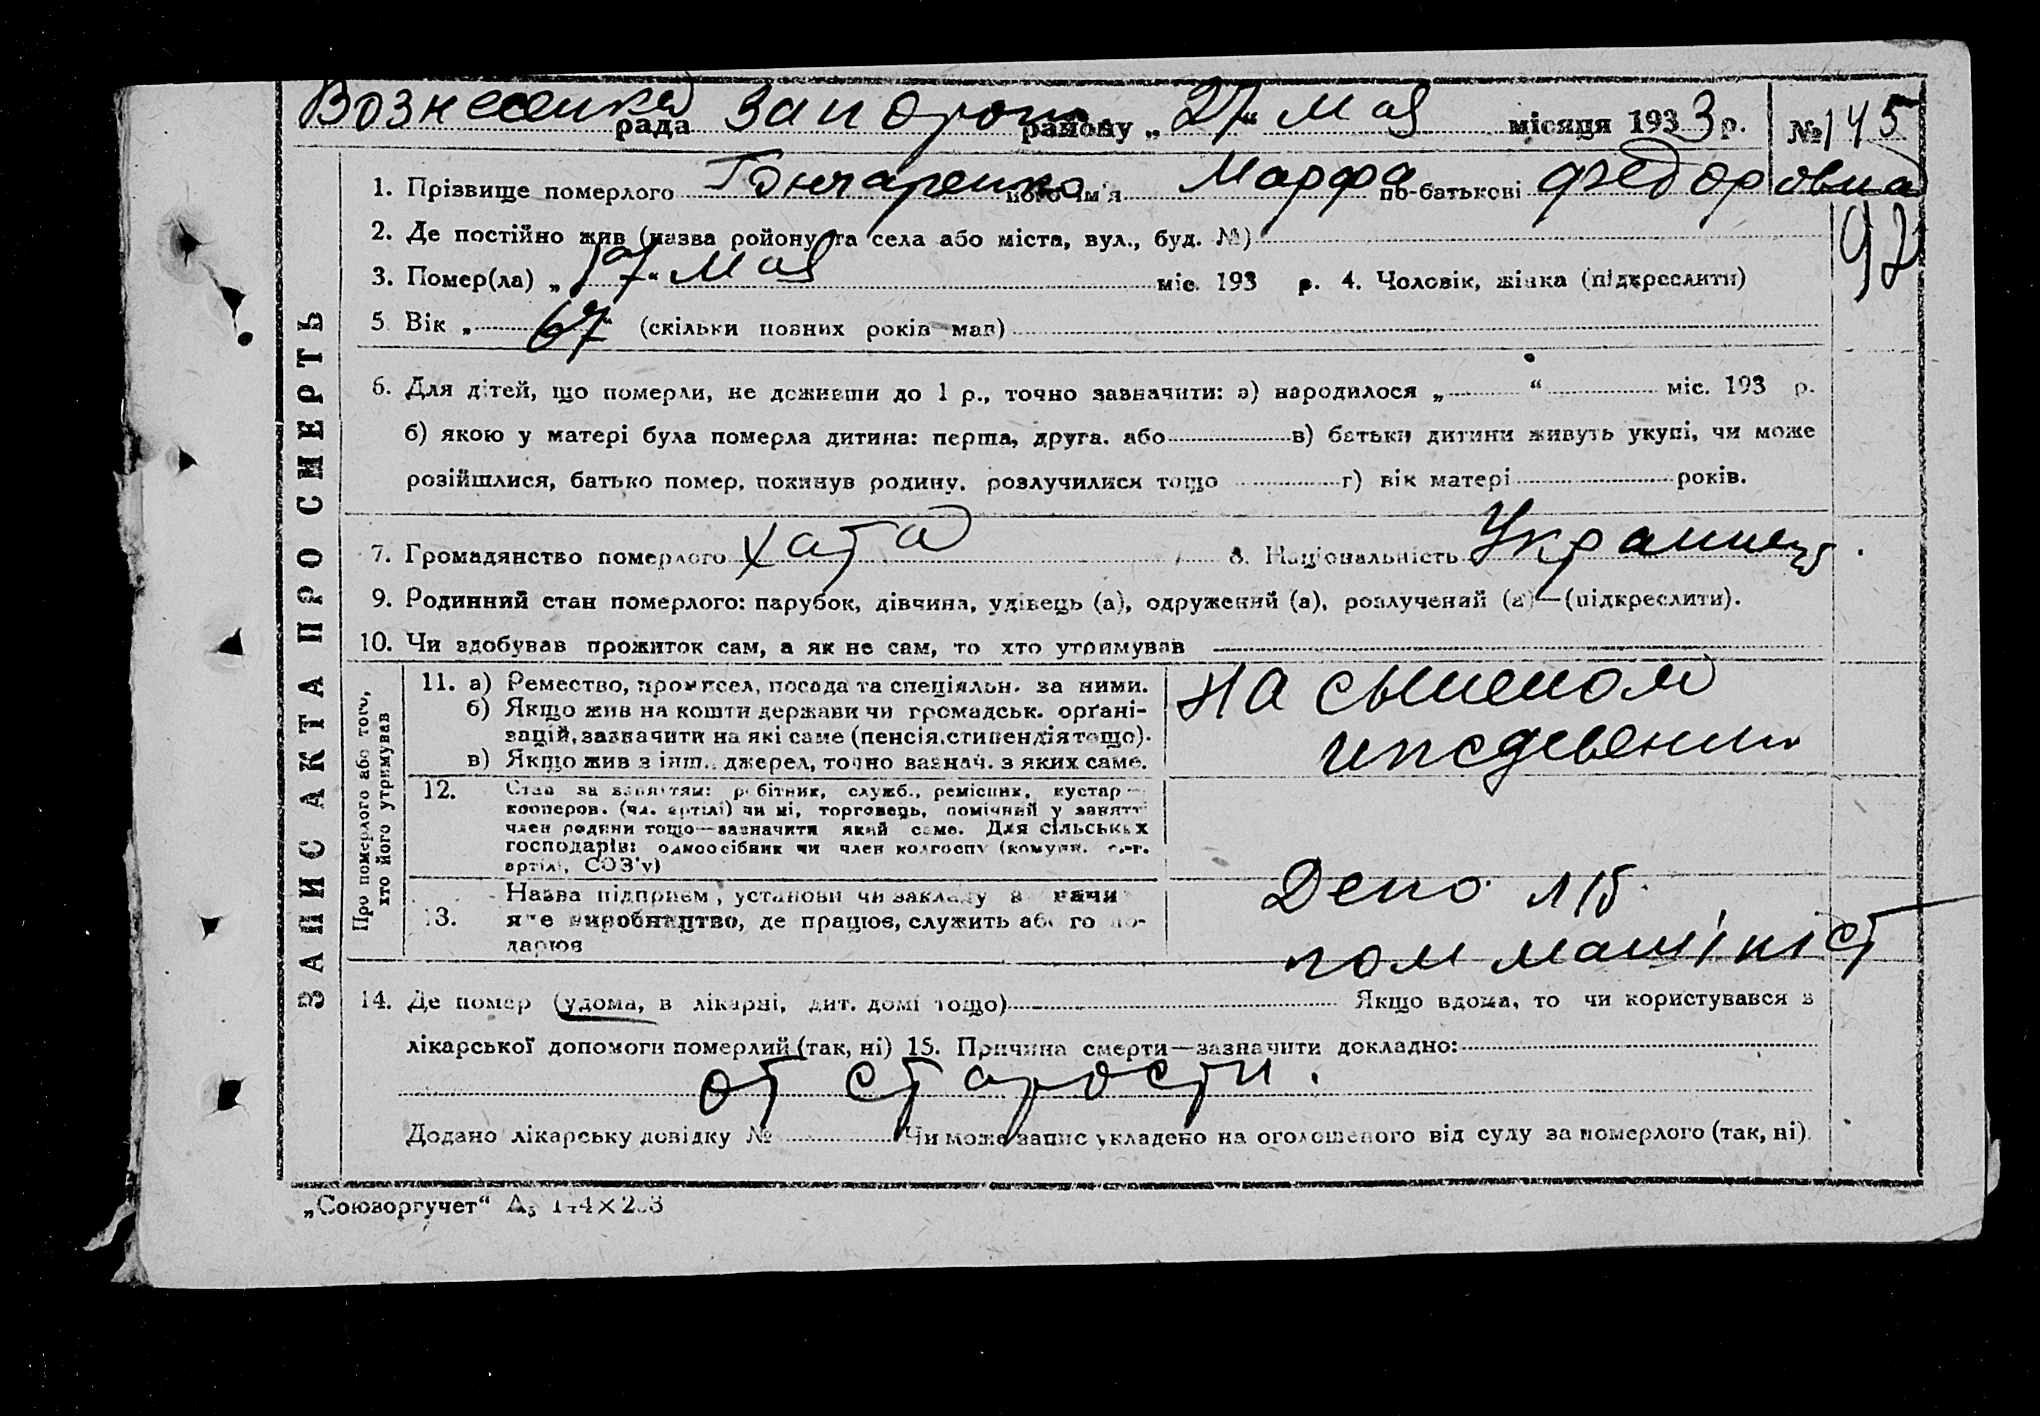 Вознесенка рада Запорож району „27“ мая місяця 1933 р. № 145
1. Прізвище померлого Гончаренко його ім'я Марфа по-батькові Федоровна
92
2. Де постійно жив (назва ройону та села або міста, вул., буд. №)
3. Помер(ла) „17“ мая міс. 193 р. 4. Чоловік, жінка (підкреслити)
5. Вік „67“ (скільки повних років мав)
6. Для дітей, що померли, не доживши до 1 р., точно зазначити: а) народилося „ “ міс. 193 р.
б) якою у матері була померла дитина: перша, друга, або в) батьки дитини живуть укупі, чи може
розійшлися, батько помер, покинув родину, розлучилися тощо г) вік матері років.
7. Громадянство померлого хата 8. Національність Украинец
9. Родинний стан померлого: парубок, дівчина, удівець (а), одружений (а), розлучений (а)—(підкреслити).
10. Чи здобував прожиток сам, а як не сам, то хто утримував
ЗАПИС АКТА ПРО СМЕРТЬ
Про померлого або того,
хто його утримував
11. а) Ремество, промисел, посада та спеціяльн. за ними.
б) Якщо жив на кошти держави чи громадськ. орґані-
зацій, зазначити на які саме (пенсія, стипендія тощо).
в) Якщо жив з інш. джерел, точно зазнач. з яких саме.
на сыненом
иждевении
12. Стан за заняттям: робітник, служб., ремісник, кустар—
кооперов. (чл. артілі) чи ні, торговець, помічний у занятті
член родини тощо—зазначити який саме. Для сільських
господарів: одноосібник чи член колгоспу (комуни, с.-г.
артілі, СОЗ'у)
13. Назва підприєм., установи чи закладу
яке виробництво, де працює, служить або го по-
дарює
Депо
пом машініст
14. Де помер (удома, в лікарні, дит. домі тощо) Якщо вдома, то чи користувався з
лікарської допомоги померлий (так, ні) 15. Причина смерти—зазначити докладно:
от старости.
Додано лікарську довідку № Чи може запис укладено на оголошеного від суду за померлого (так, ні).
„Союзоргучет“ А₅